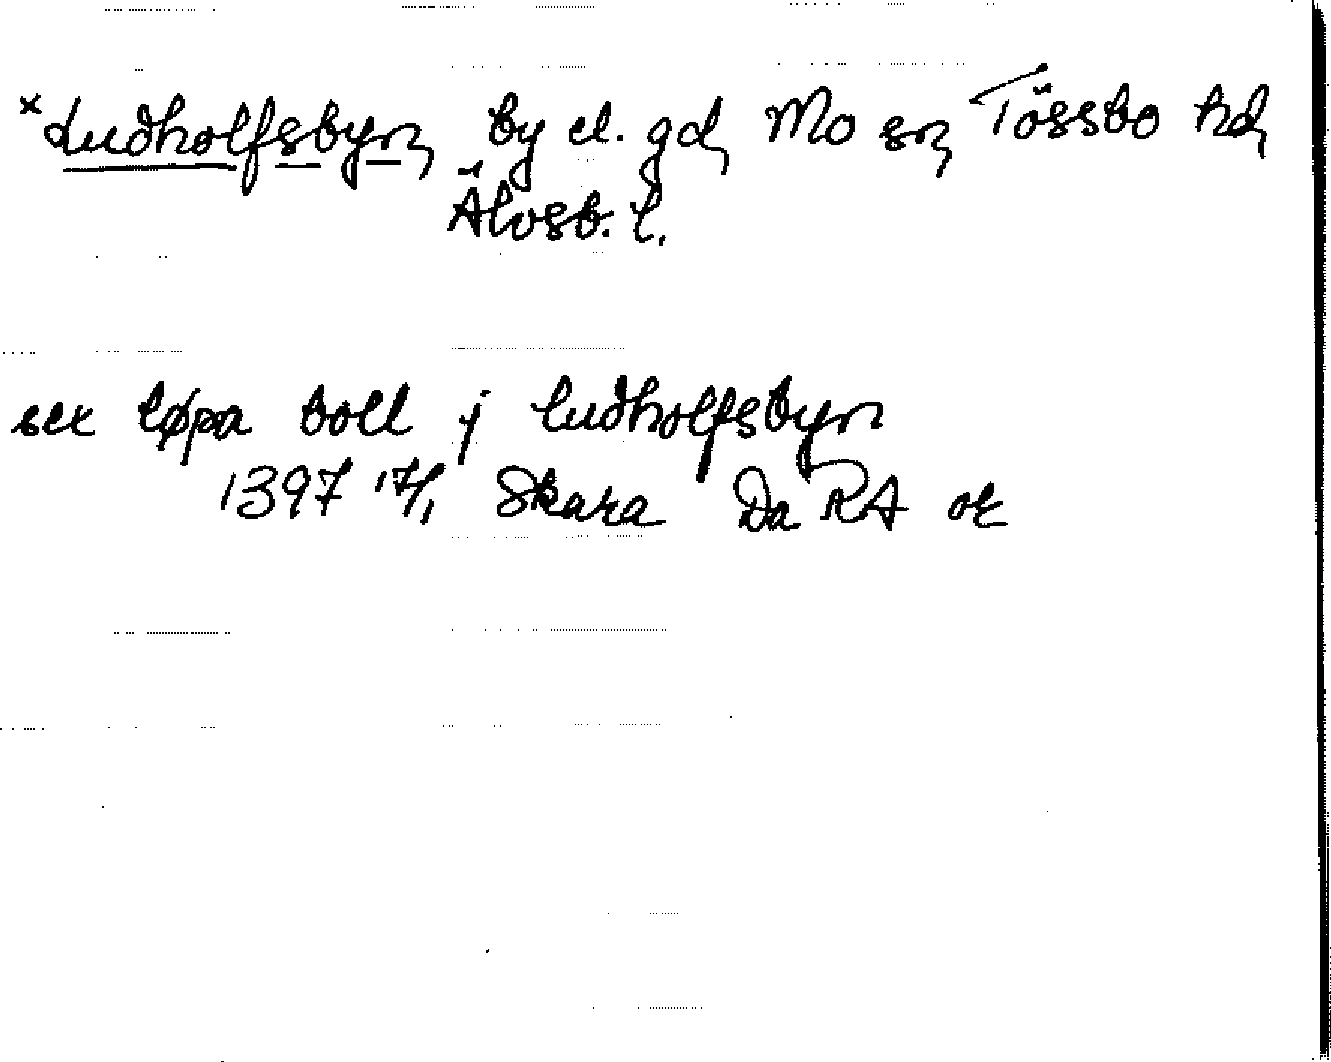 *Ludholfsbyn, by el. gd, Mo sn, Tössbo hd,
Älvsb. l.
sex løpa boll j ludholfsbyn
1397 17/1 Skara Da RA or